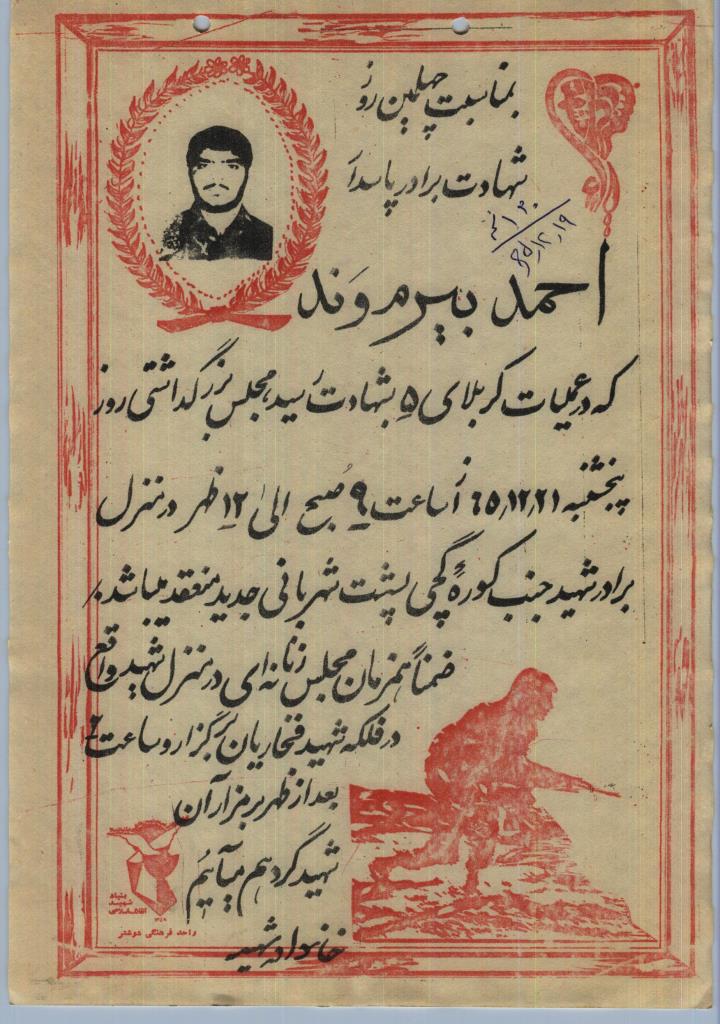 بمناسبت چهلمین روز
شهادت برادر پاسدار
۶۵٫۱۲٫۱۹
احمد بیرموند
که در عملیات کربلای ۵ بشهادت رسید، مجلس بزرگداشتی روز
پنجشنبه ۶۵٫۱۲٫۲۱ از ساعت ۹ صبح الی ۱۲ ظهر در منزل
برادر شهید جنب کورهٔ گچی پشت شهربانی جدید منعقد میباشد٫
ضمناً همزمان مجلس زنانه‌ای در منزل شهید واقع
در فلکه شهید فتحاریان برگزار و ساعت ۲
بعد از ظهر بر مزار آن
شهید گرد هم میآئیم
خانواده شهید
بنیاد
شهید
انقلاب اسلامی
واحد فرهنگی شوشتر